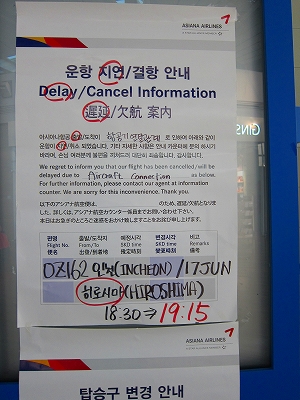 ASIANA AIRLINES
운항 지연/결항 안내
Delay/Cancel Information
遅延/欠航 案内
아시아나항공 출발/도착이 항공기 연결관계 로 인하여 아래와 같이
운항이 지연/취소 되었습니다. 기타 자세한 사항은 안내 카운터에 문의 하시기
바라며, 손님 여러분께 불편을 끼쳐드려 대단히 죄송합니다. 감사합니다.
We regret to inform you that flight has been cancelled/will be
delayed due to Aircraft Connection as below.
For further information, please contact our agent at information
counter. We are sorry for this inconvenience. Thank you.
以下のアシアナ航空便は、 のため、遅延/欠航となりま
した。詳しくは、アシアナ航空カウンター係員までお問い合わせ下さい。
本日はお急ぎのところご迷惑をおかけ致しますことをお詫び申し上げます。
편명 출발/도착지 예정시각 변경시각 비고
Flight No. From/To SKD time SKD time Remarks
便名 出発/到着地 推定時刻 変更時刻 備考
OZ162 인천(INCHEON)/17JUN
히로시마(HIROSHIMA)
18:30⇒19:15
ASIANA AIRLINES
ASIANA AIRLINES
탑승구 변경 안내